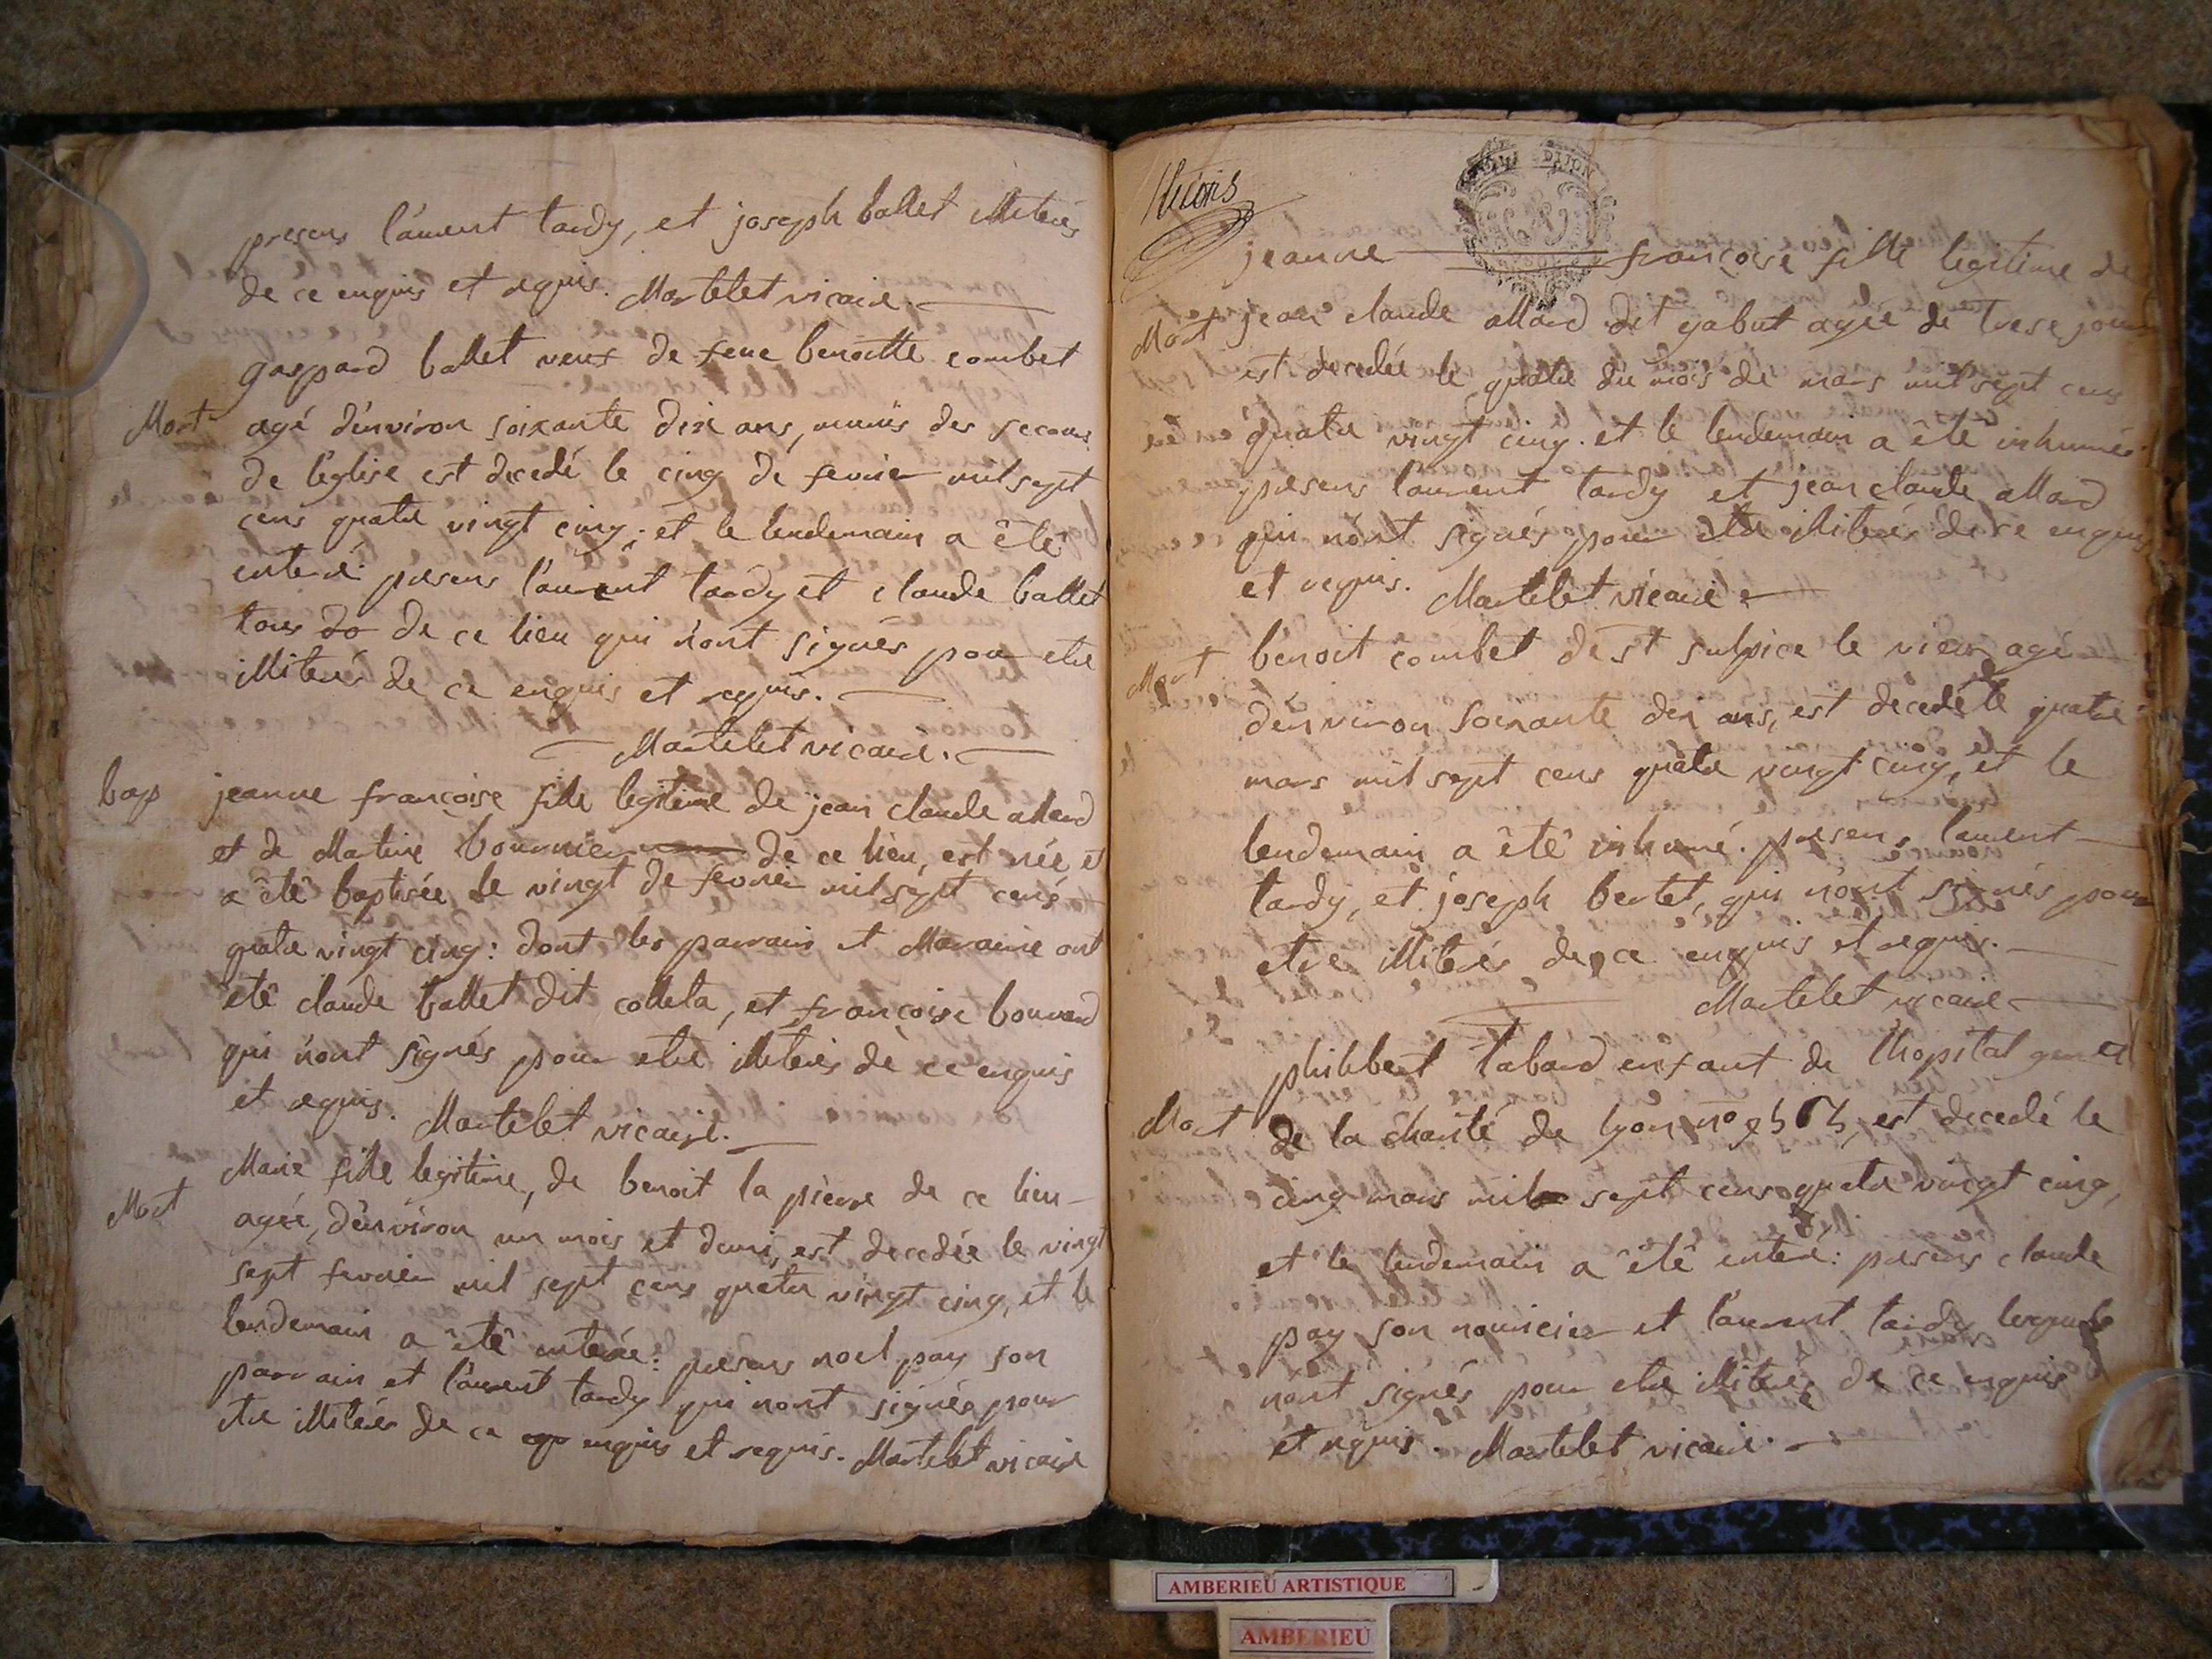 presens laurent tardy, et joseph ballet illiterés
de ce enquis et requis. Martelet vicaire.
gaspard ballet veuf de feue benoitte combet
Mort
agé d'environ soixante dix ans, munis des secours
de l'eglise est decedé le cinq de fevrier mil sept
cens quatre vingt cinq; et le lendemain a êtê
enterré: presens laurent tardy et claude ballet
tous do de ce lieu qui n'ont signés pour etre
illiterés de ce enquis et requis.
Martelet vicaire.
bap
jeanne françoise fille legitime de jean claude allard
et de Martine bournier de ce lieu, est née et
a êtê baptisée le vingt de fevrier mil sept cens
quatre vingt cinq: dont les parrain et Maraine ont
êtê claude ballet dit colleta, et françoise bouvard
qui n'ont signés pour etre illiterés de ce enquis
et requis. Martelet vicaire.
Marie fille legitime, de benoit la pierre de ce lieu
Mort
agée, d'environ un mois et demi, est decedée le vingt
sept fevrier mil sept cens quatre vingt cinq, et le
lendemain a êtê enterée: presens noel pay son
parrain et laurent tardy qui n'ont signés pour
etre illiterés de ce enquis et requis. Martelet vicaire
DIJON
jeanne françoise fille legitime de
Mort
jean claude allard dit gabut agée de trese jours
est decedée le quatre du mois de mars mil sept cens
quatre vingt cinq. et le lendemain a êtê inhumée
presens laurent tardy et jean claude allard
qui n'ont signés pour etre illiterés de ce enquis
et requis. Martelet vicaire
Mort
benoit combet de st sulpice le vieux agé
d'environ soixante dix ans, est decedé le quatre
mars mil sept cens quatre vingt cinq, et le
lendemain a êtê inhumé. presens laurent
tardy, et joseph bertet, qui n'ont signés pour
etre illiterés de ce enquis et requis.
Martelet vicaire
philibert tabard enfant de l'hopital
Mort
de la charité de lyon n° est decedé le
cinq mars mil sept cens quatre vingt cinq,
et le lendemain a êtê enterré: presens claude
pay son nouricier et laurent tardy lesquels
n'ont signés pour etre illiterés de ce enquis
et requis. Martelet vicaire.
AMBERIEU ARTISTIQUE
AMBERIEU